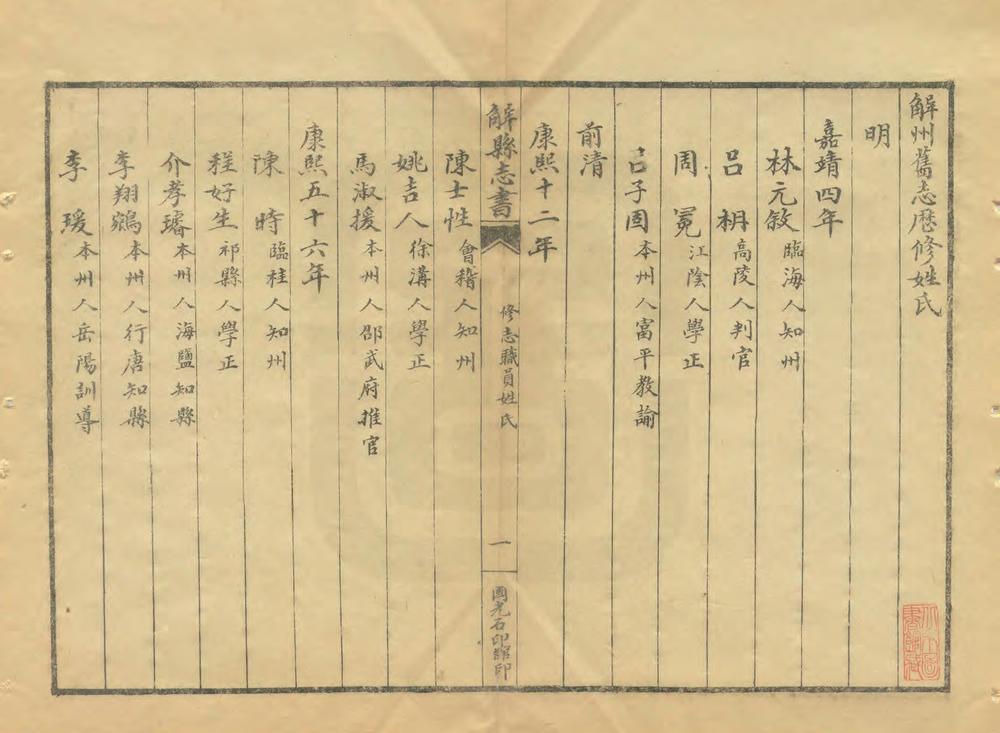 解州舊志歷修姓氏
明
嘉靖四年
林元敘臨海人知州
呂柟高陵人判官
周冕江陰人學正
呂子固本州人富平教諭
前清
康熙十二年
解縣志書 修志職員姓氏 一 國光石印館印
陳士性會稽人知州
姚吉人徐溝人學正
馬淑援本州人邵武府推官
康熙五十六年
陳時臨桂人知州
程好生祁縣人學正
介孝璿本州人海鹽知縣
李翔鵷本州人行唐知縣
李瑗本州人岳陽訓導